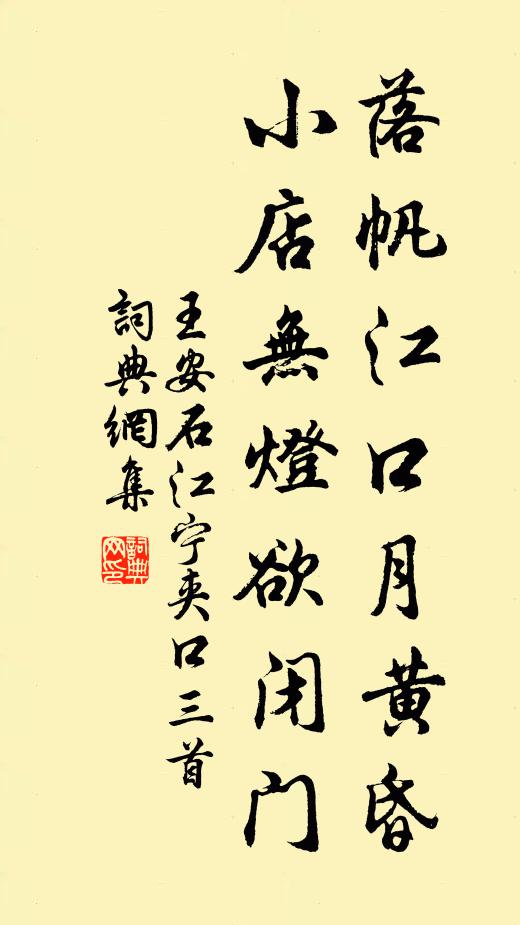 落帆江口月黄昏
小店無燈欲闭门
王安石江宁夹口三首
詞典網集
詞典网印